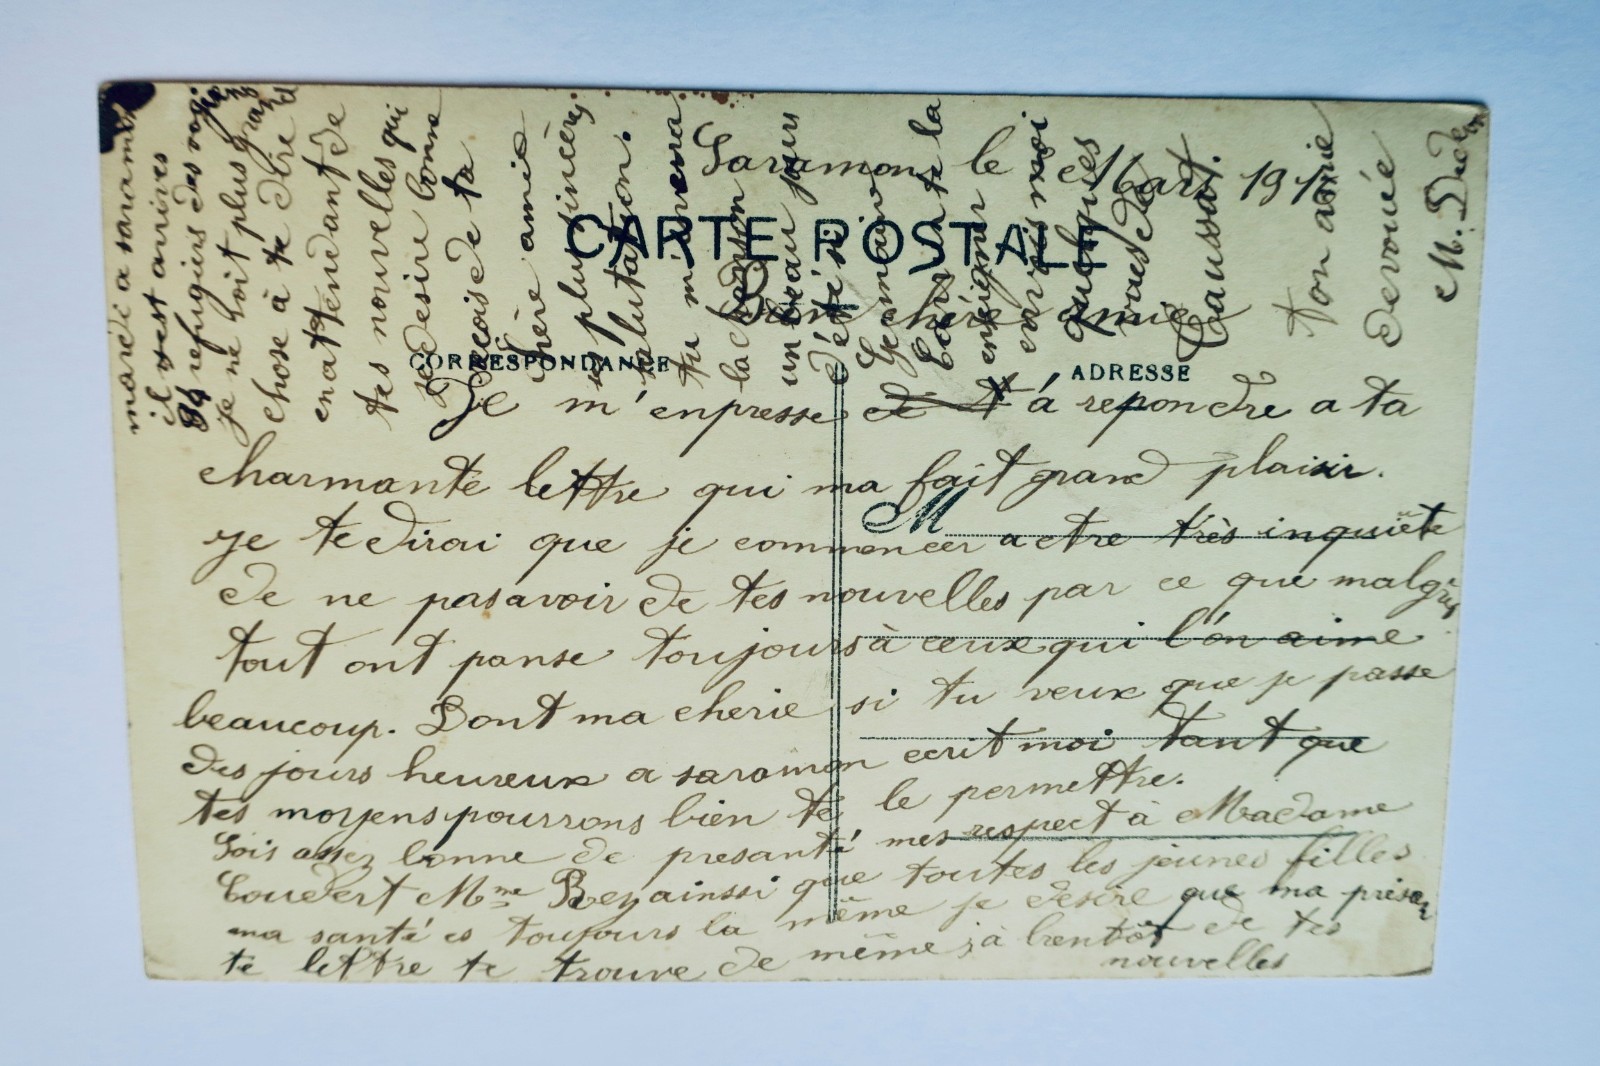 Saramon le Mars 191
CARTE POSTALE
Bien chère amie
CORRESPONDANCE
ADRESSE
Je m'enpresse de t'à repondre a ta
charmante lettre qui ma fait grand plaisir.
M
je te dirai que je commencer a etre très inquiëte
de ne pas avoir de tes nouvelles par ce que malgrés
tout ont panse toujours à ceux qui l'on aime
beaucoup. Dont ma cherie si tu veux que je passe
des jours heureux a saramon ecrit moi tant que
tes moyens pourrons bien te le permettre.
Sois assez bonne de presanté mes respect à Madame
Coudert Mme Rey ainssi que toutes les jeunes filles
ma santé es toujours la même je desire que ma présan
te lettre te trouve de même, à bentôt de tes
nouvelles
marcdi a saramon
il est arrives
84 refugiers des
je ne voit plus grand
chose à te dire
en attendant de
tes nouvelles qui
je desire bonne
reçoise de ta
chère amie
ses plus sincères
salutation.
tu mi
la
un beau jours
d'été si
Je m
Cars te la
enseignier
ecrits moi
quelques
vaus de
Caussat.
ton amie
devouée
M.